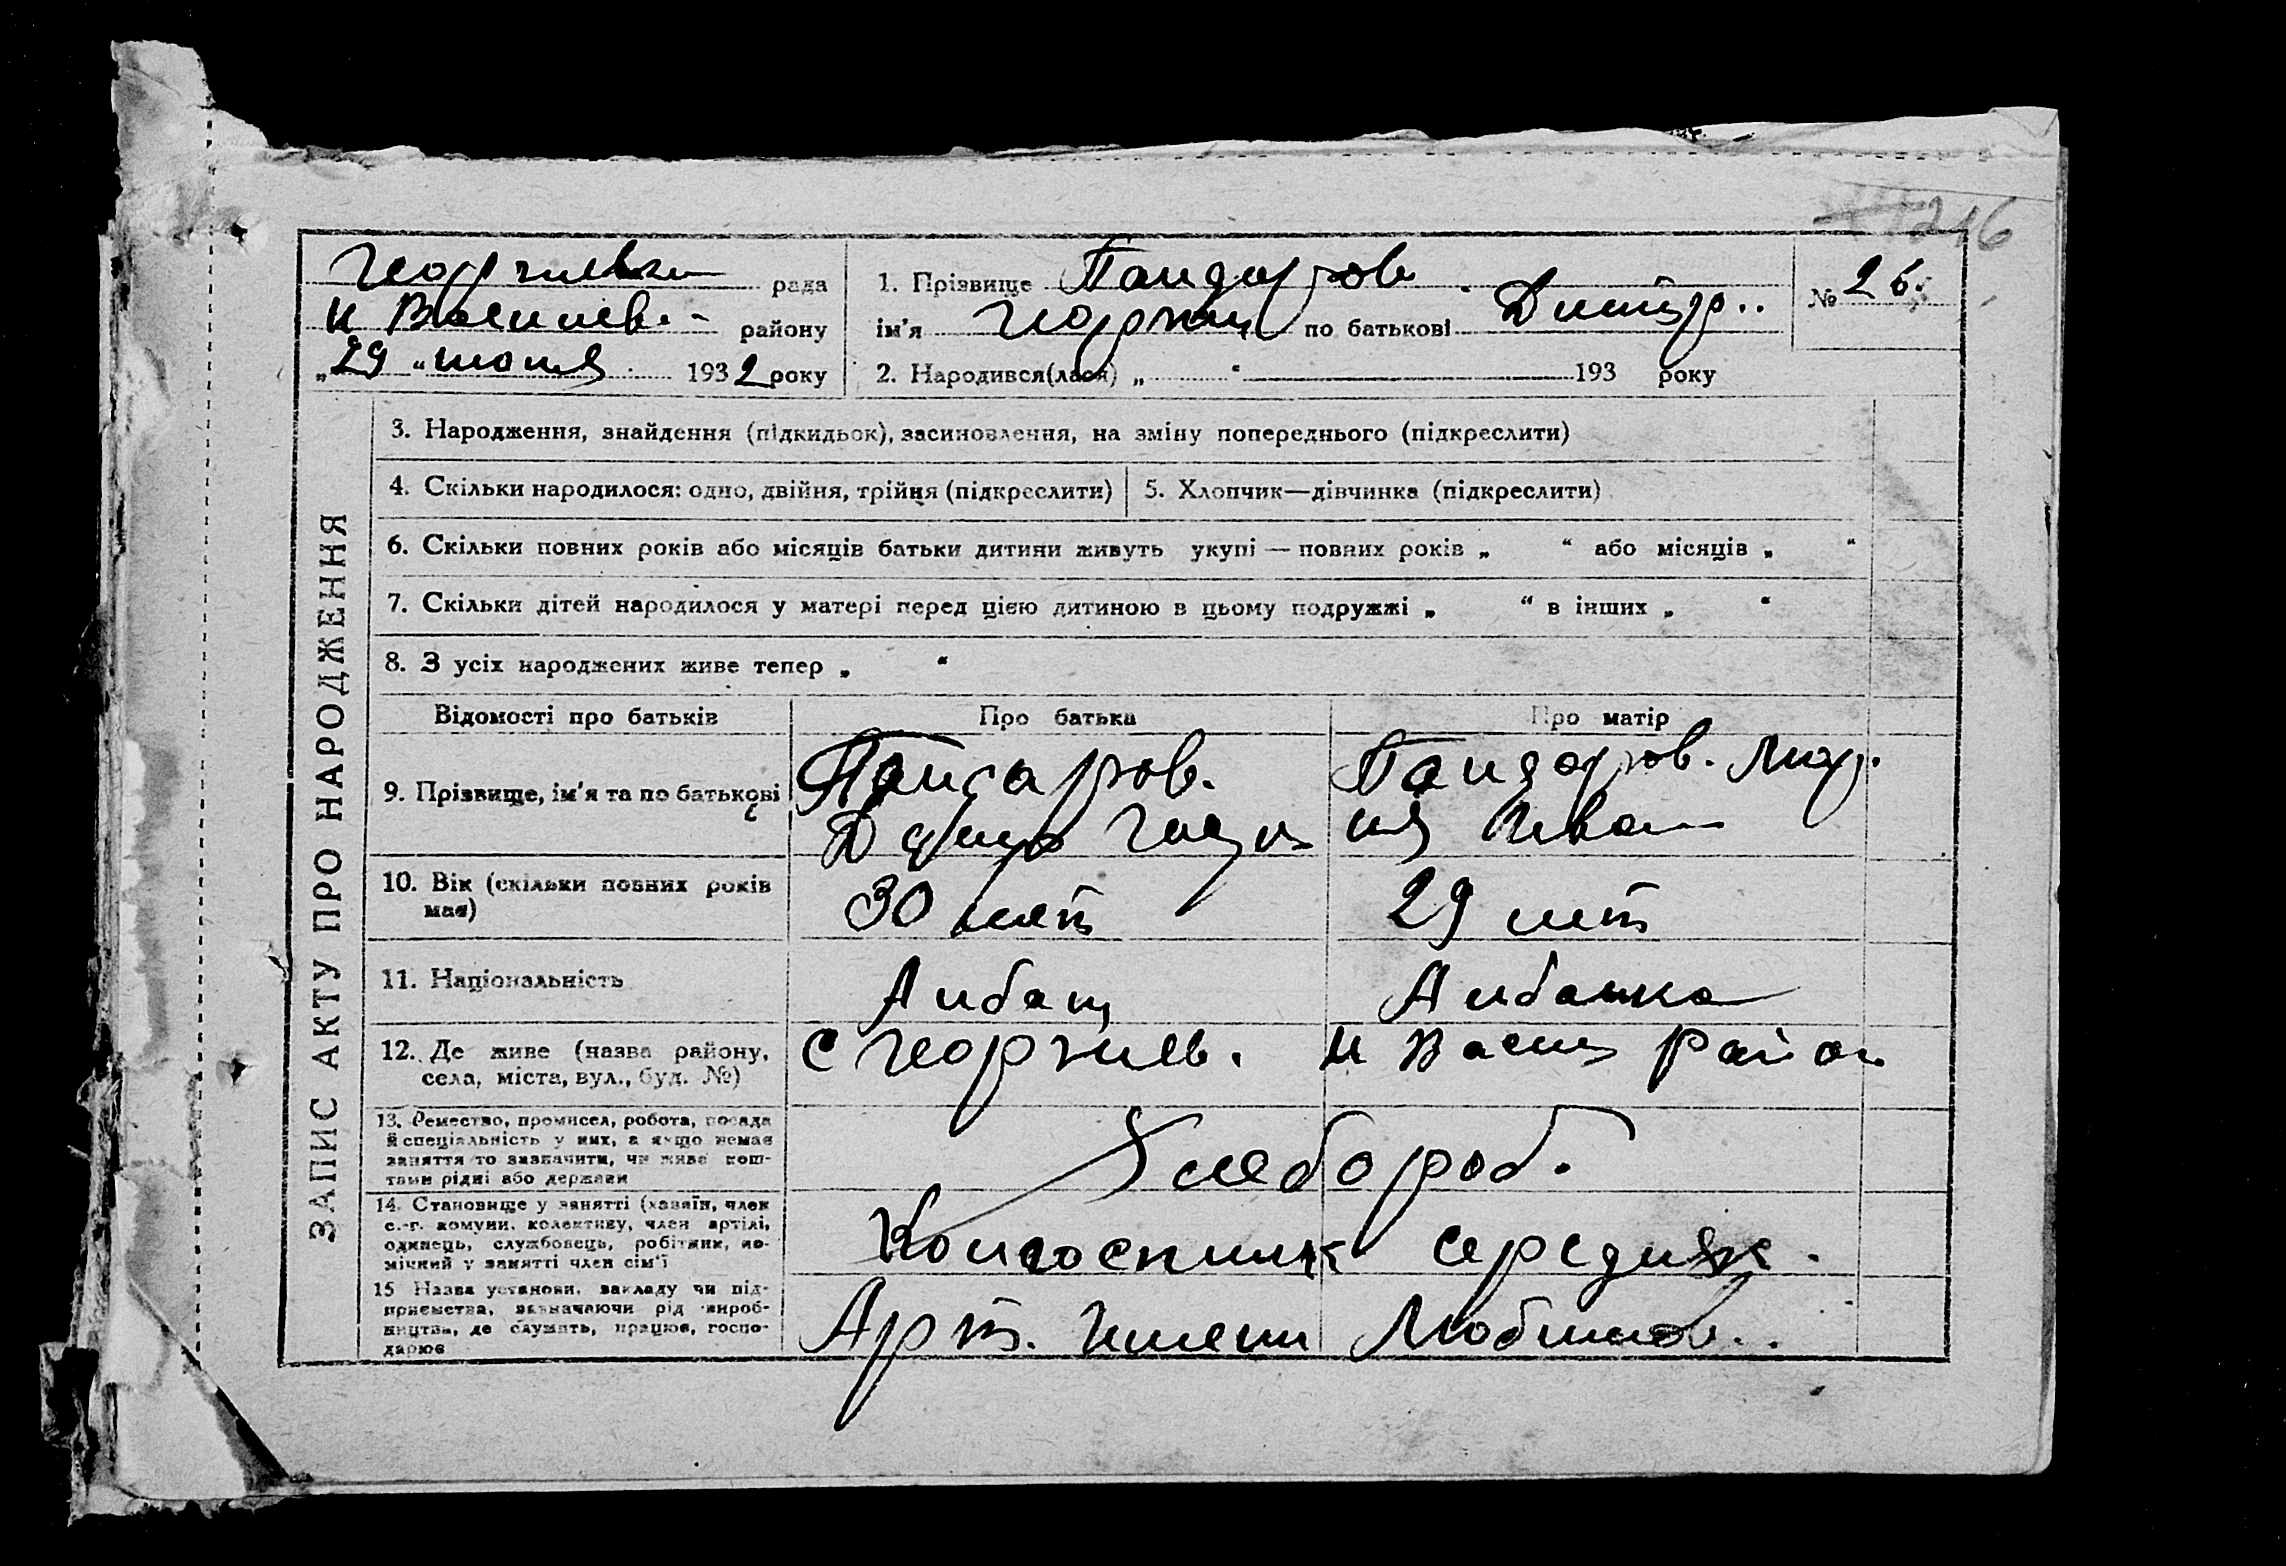 216
Георгиевка рада
Н Василев. району
„29“ июня 1932 року
1. Прізвище Пандаров
ім'я Георгий по батькові Дмитр..
№ 26.
2. Народився(лася) „ “ 193 року
ЗАПИС АКТУ ПРО НАРОДЖЕННЯ
3. Народження, знайдення (підкидьок), засиновлення, на зміну попереднього (підкреслити)
4. Скільки народилося: одно, двійня, трійня (підкреслити)
5. Хлопчик—дівчинка (підкреслити)
6. Скільки повних років або місяців батьки дитини живуть укупі — повних років „ “ або місяців „ “
7. Скільки дітей народилося у матері перед цією дитиною в цьому подружжі „ “ в інших „ “
8. З усіх народжених живе тепер „ “
Відомості про батьків Про батька Про матір
9. Прізвище, ім'я та по батькові
Пандаров.
Пандаров. Мар.
ия Иван
10. Вік (скільки повних років
має)
30 лет 29 лет
11. Національність Албанц Албанка
12. Де живе (назва району,
села, міста, вул., буд. №)
с Георгиев. Н Васил район
13. Ремество, промисел, робота, посада
й спеціяльність у них, а якщо немає
заняття то зазначити, чи живе кош-
тами рідні або держави
Хлебороб.
14. Становище у занятті (хазяїн, член
с.-г. комуни, колективу, член артілі,
одинець, службовець, робітник, по-
мічний у занятті член сім'ї
Колгоспник середняк.
15 Назва установи, закладу чи під-
приємства, зазначаючи рід вироб-
ництва, де служить, працює, госпо-
дарює
Арт. Имени